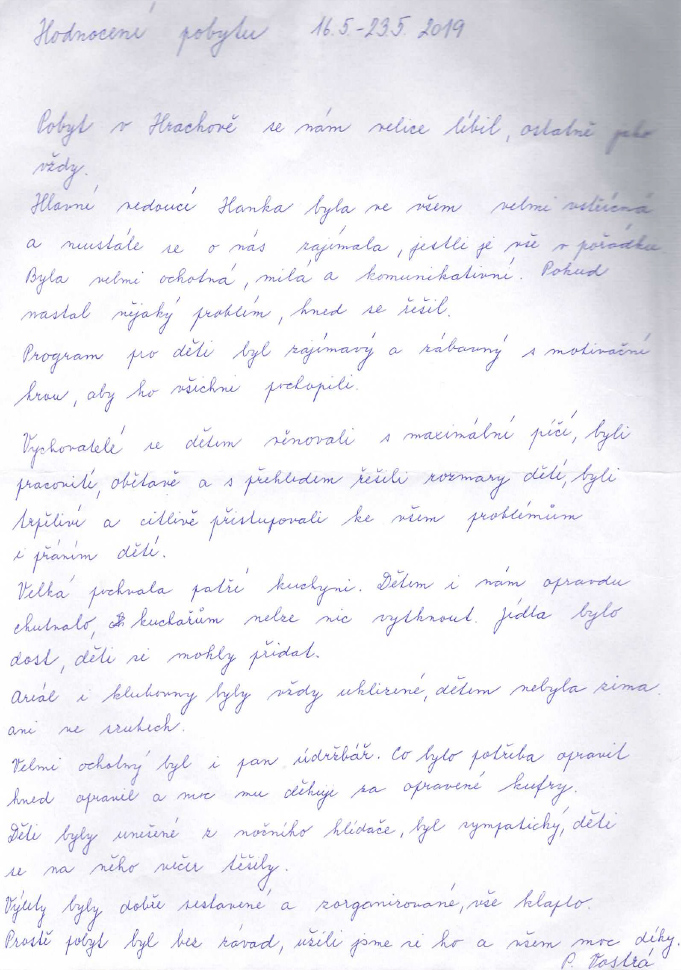 Hodnocení pobytu 16.5.-23.5. 2019
Pobyt v Hrachově se nám velice líbil, ostatně jako
vždy.
Hlavní vedoucí Hanka byla ve všem velmi vstřícná
a neustále se o nás zajímala, jestli je vše v pořádku.
Byla velmi ochotná, milá a komunikativní. Pokud
nastal nějaký problém, hned se řešil.
Program pro děti byl zajímavý a zábavný s motivační
hrou, aby ho všichni pochopili.
Vychovatelé se dětem věnovali s maximální péčí, byli
pracovití, obětavě a s přehledem řešili rozmary dětí, byli
trpěliví a citlivě přistupovali ke všem problémům
i přáním dětí.
Velká pochvala patří kuchyni. Dětem i nám opravdu
chutnalo, kuchařům nelze nic vytknout. Jídla bylo
dost, děti si mohly přidat.
Areál i klubovny byly vždy uklizené, dětem nebyla zima
ani ve srubech.
Velmi ochotný byl i pan údržbář. Co bylo potřeba opravit
hned opravil a moc mu děkuje za opravené kufry.
Děti byly unešené z nočního hlídače, byl sympatický, děti
se na něho večer těšily.
Výlety byly dobře sestavené a zorganizované, vše klaplo.
Prostě pobyt byl bez závad, užili jsme si ho a všem moc díky.
P. Vostrá